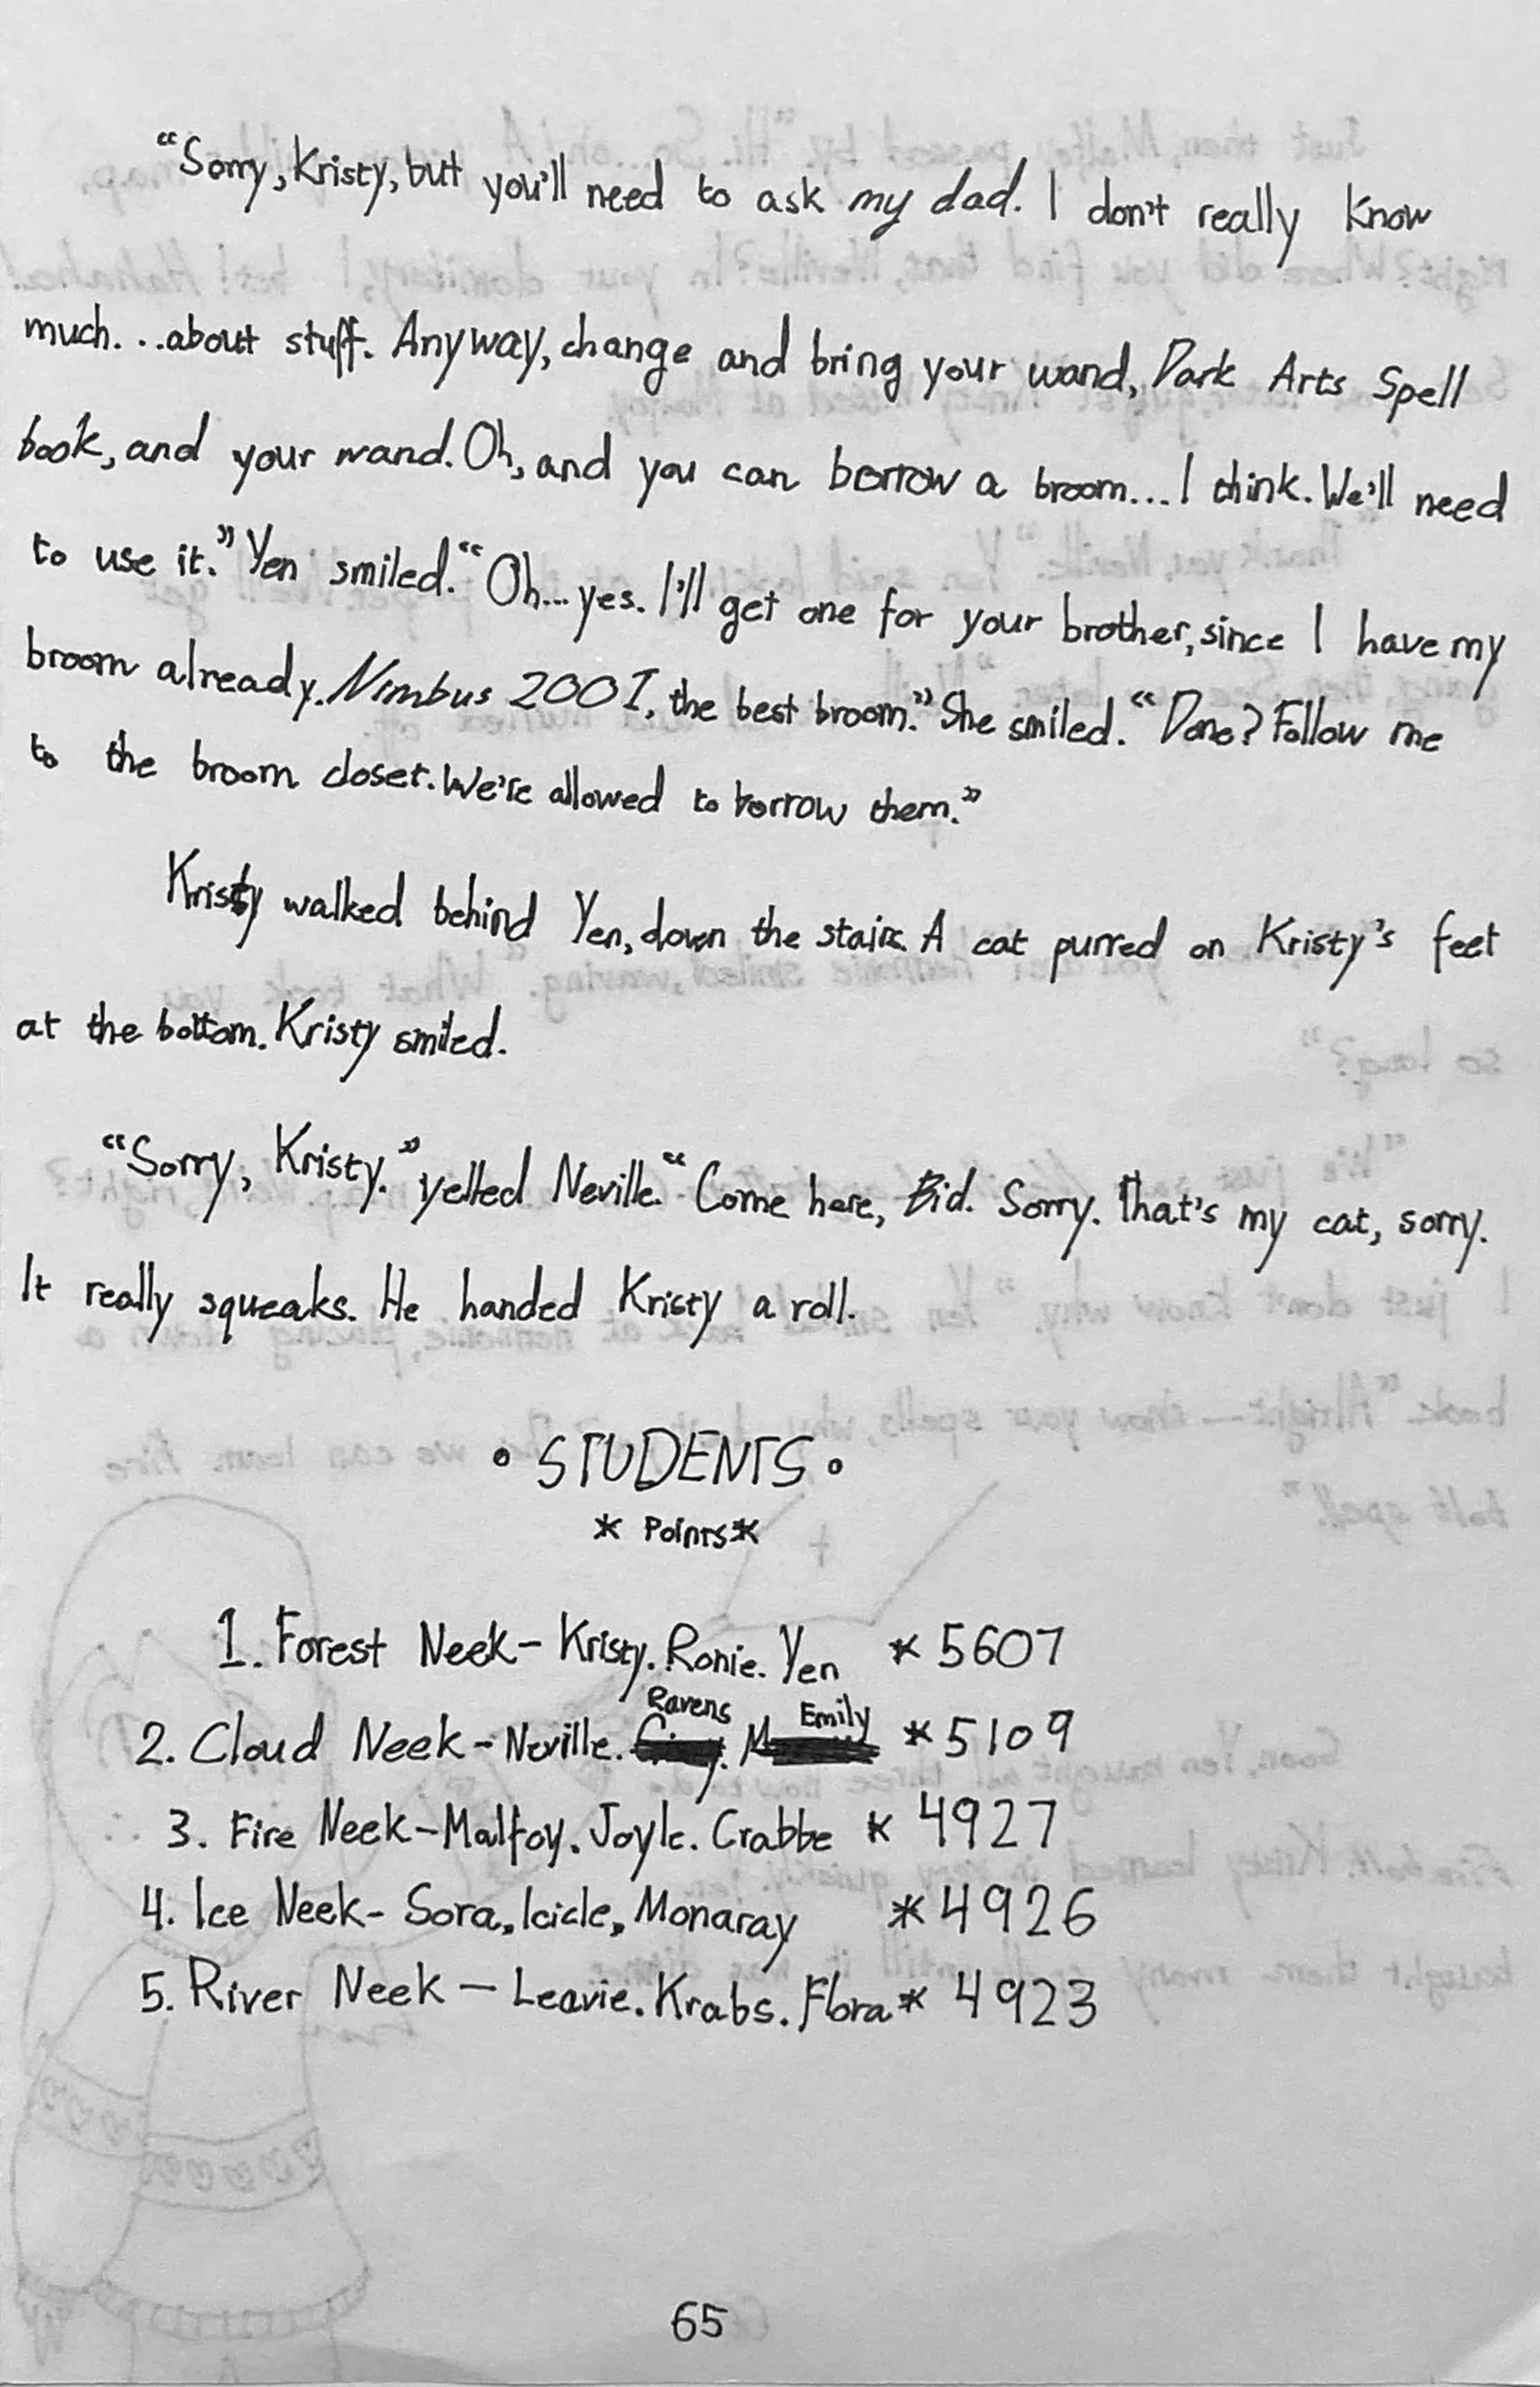 “Sorry, Kristy, but you'll need to ask my dad. I don't really know
much...about stuff. Anyway, change and bring your wand, Dark Arts Spell
book, and your wand. Oh, and you can borrow a broom... I think. We'll need
to use it.” Yen smiled. “Oh... yes. I'll get one for your brother, since I have my
broom already. Nimbus 2001, the best broom.” She smiled. “Done? Follow me
to the broom closet. We're allowed to borrow them.”
Kristy walked behind Yen, down the stairs. A cat purred on Kristy's feet
at the bottom. Kristy smiled.
“Sorry, Kristy.” yelled Neville. “Come here, Bid. Sorry. That's my cat, sorry.
It really squeaks. He handed Kristy a roll.
• STUDENTS •
* Points *
1. Forest Neek - Kristy. Ronie. Yen * 5607
2. Cloud Neek - Neville. Ravens Emily * 5109
3. Fire Neek - Malfoy. Joyle. Crabbe * 4927
4. Ice Neek - Sora, Icicle, Monaray * 4926
5. River Neek - Leavie. Krabs. Flora * 4923
65